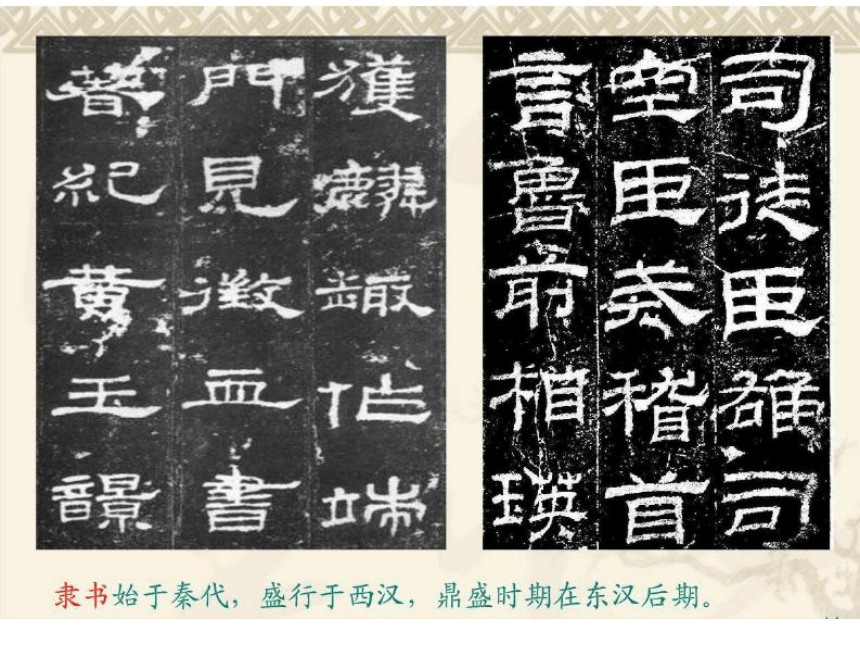 獲麟趣作端
門見徵血書
著紀黄玉
司徒臣雄司
空臣戒稽首
言魯前相瑛
隶书始于秦代，盛行于西汉，鼎盛时期在东汉后期。